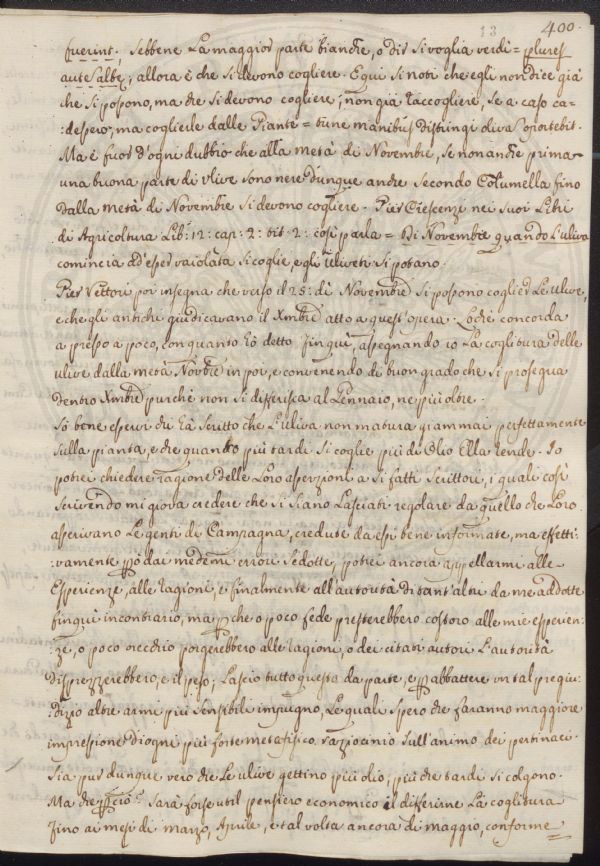 13 400.
fuerint; Sebbene La maggior parte bianche, o dir si voglia verdi = plures
autē Salbę; allora è che si devono cogliere. E qui si noti che egli non dice già
che si possono, ma che si devono cogliere; non già raccogliere, se a caso ca-
:dessero; ma coglierle dalle Piante = tūnc manibus distringi olivā oportebit.
Ma è fuor d'ogni dubbio che alla metà di Novembre, se non anche prima
una buona parte di Vlive sono nere dunque anche secondo Columella fino
dalla metà di Novembre si devono cogliere. Pier Crescenzi nei suoi Libri
di Agricoltura Lib: 12: cap: 2: tit: 2: così parla = Di Novembre quando L'uliva
comincia ad esser vaiolata si coglie, e gli uliveti si potano.
Pier Vettori poi insegna che verso il 25: di Novembre si possono coglier Le ulive,
e che gli antichi giudicavano il Xmbre atto a quest'opera. Loche concorda
a presso a poco, con quanto hò detto fin quì, assegnando io La coglitura delle
ulive dalla metà Novbre in poi, e convenendo di buon grado che si prosegua
dentro Xmbre purchè non si differisca al Gennaio, ne più oltre.
Sò bene esservi chi hà scritto che L'uliva non matura giammai perfettamente
sulla pianta, e che quanto più tardi si coglie più di Olio Ella rende. Io
potrei chiedere ragione delle Loro asserzioni a sì fatti scrittori, i quali così
scrivendo mi giova credere che si siano Lasciati regolare da quello che Loro
asserivano Le genti di Campagna, credute da essi bene informate, ma effetti:
:vamente ꝑò dai medemi errori sedotte, potrei ancora appellarmi alle
Esperienze, alle ragioni, e finalmente all'autorità di tant'altri da me addotte
fin quì incontrario, ma ꝑche o poco fede presterebbero costoro alle mie esperien:
:ze, o poco orecchio porgerebbero alle ragioni, o dei citati autori L'autorità
disprezzerebbero, e il peso; Lascio tutto questo da parte, e ꝑ abbattere un tal pregiu:
:dizio altre armi più sensibili impugno, Le quali spero che faranno maggiore
impressione d'ogni più forte metafisico raziocinio sull'animo dei pertinaci.
Sia pur dunque vero che Le ulive gettino più olio, più che tardi si colgono.
Ma che ꝑ ciò? Sarà forse util pensiero economico il differirne La coglitura
fino ai mesi di marzo, Aprile, e tal volta ancora di maggio, conforme